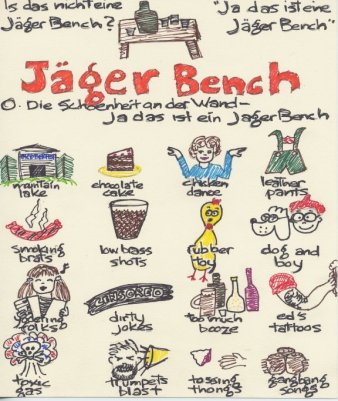 Is das nicht eine
Jäger Bench?
"Ja das ist eine
Jäger Bench"
Jäger Bench
O. Die Schoenheit an der Wand-
Ja das ist ein Jager Bench
mountain
lake
chocolate
cake
chicken
dance
leather
pants
smoking
brats
low bass
shots
rubber
toy
dog and
boy
folks
dirty
jokes
too much
booze
ed's
tattoos
toxic
gas
trumpets
blast
tossing
thongs
gangbang
songs